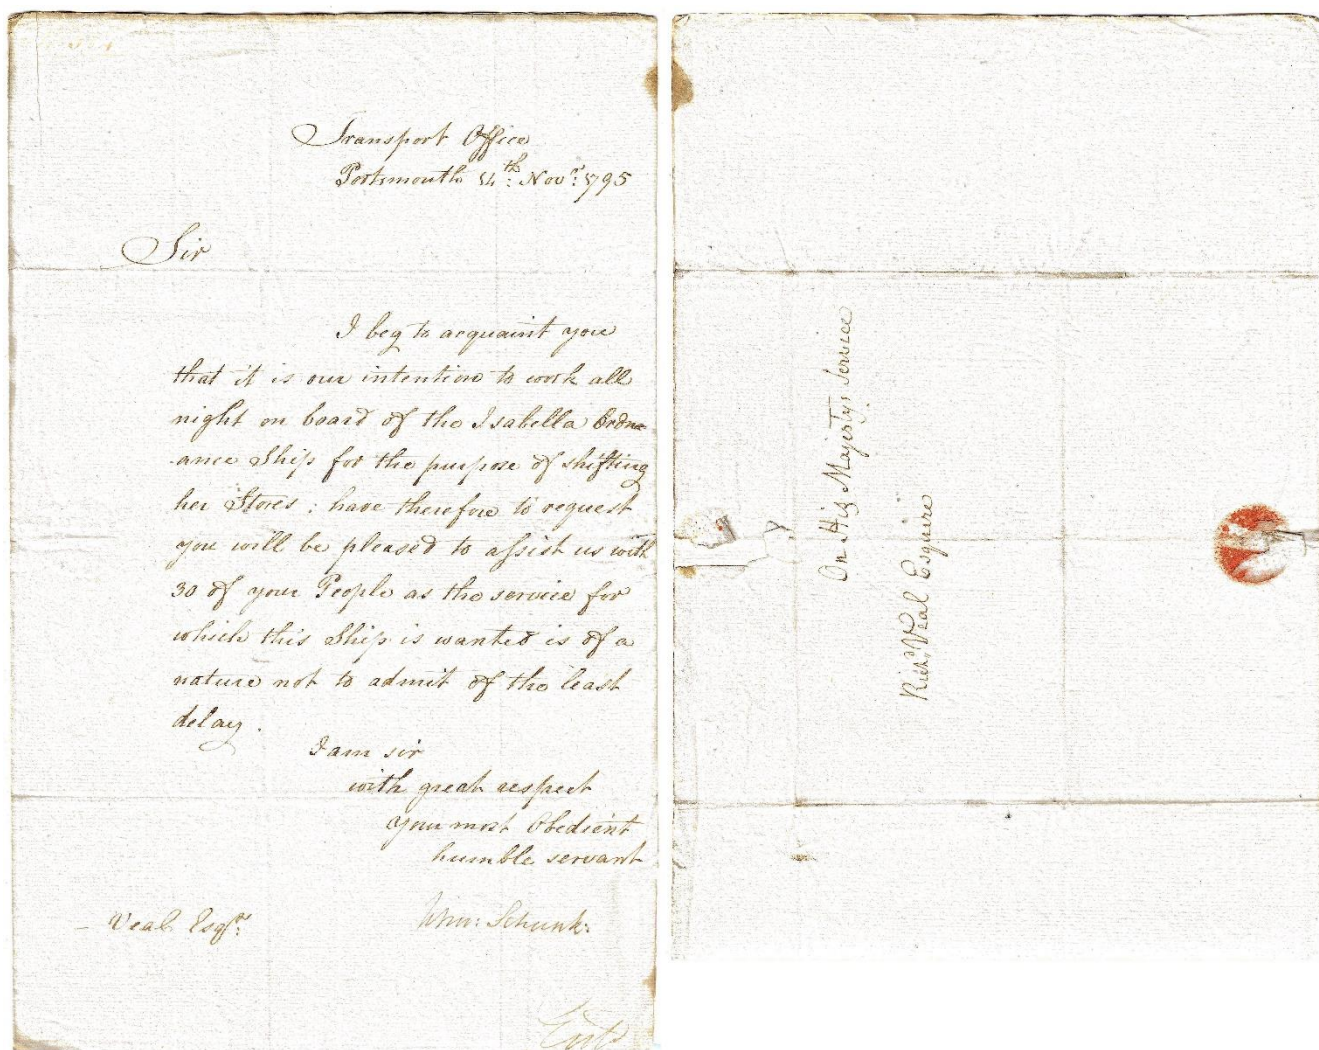 Transport Office
Portsmouth 14th: Novr: 1795
Sir
I beg to acquaint you
that it is our intention to work all
night on board of the Isabella Ordn-
ance Ship for the purpose of shifting
her Stores; have therefore to request
you will be pleased to assist us with
30 of your People as the service for
which this Ship is wanted is of a
nature not to admit of the least
delay.
I am sir
with great respect
your most Obedient
humble servant
Wm: Schunk:
Veal Esqr:
On His Majestys Service
Richd. Veal Esquire